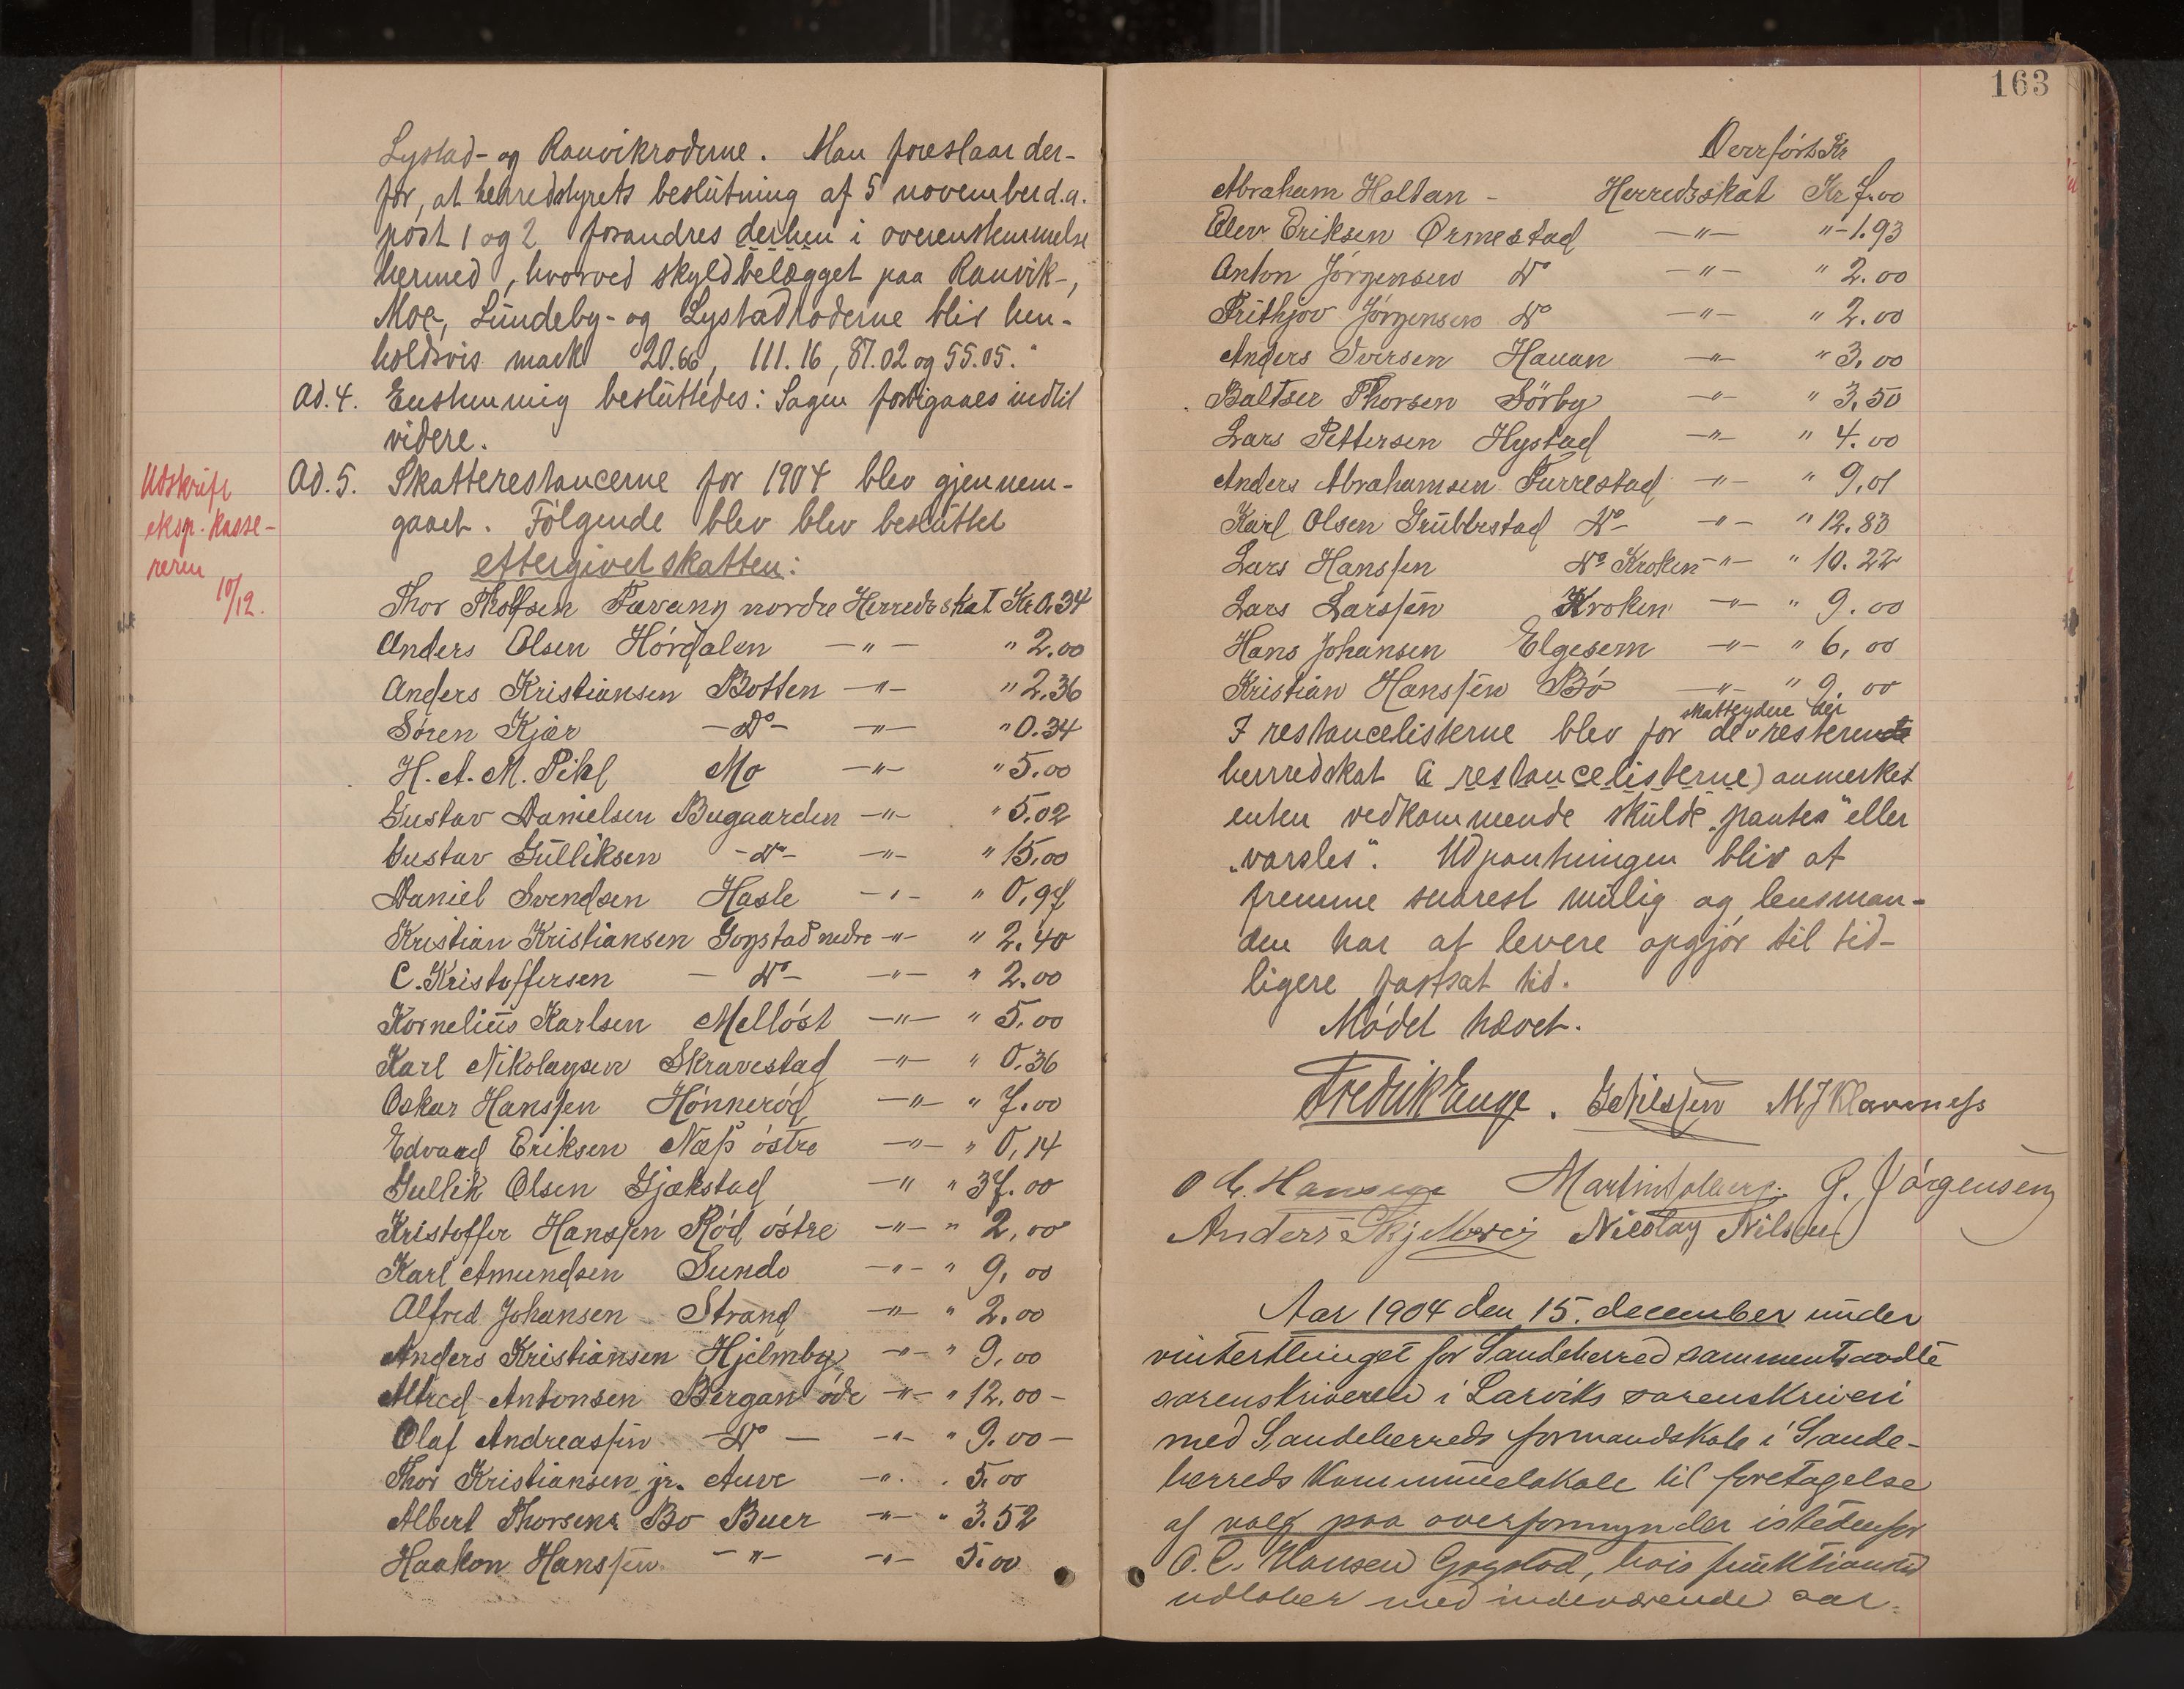 Lystad- og Ranvikroderne. Man foreslaar der-
for, at herredstyrets beslutning af 5 november d.a.
post 1 og 2 forandres derhen i overenstemmelse
hermed, hvorved skyldbelægget paa Ranvik-,
Moe-, Lundeby- og Lystadroderne blir hen-
holdsvis mark 20.66, 111.16, 87.02 og 55.05."
Ad. 4. Enstemmig besluttedes: Sagen forbigaaes indtil
videre.
Udskrift
eksp. kasse-
reren
10/12.
Ad. 5. Skatterestancerne for 1904 blev gjennem-
gaaet. Følgende blev blev besluttet
eftergivet skatten:
Thor Tholfsen Fævang nordre Herredsskat Kr. 0.34
Anders Olsen Hørdalen —"— " 2.00
Anders Kristiansen Botten —"— " 2.36
Søren Kjær —Do— —"— " 0.34
H. A. M. Pihl Mo —"— " 5.00
Gustav Danielsen Bugaarden —"— " 5.02
Gustav Gulliksen —Do— —"— " 15.00
Daniel Svendsen Hasle —"— " 0,97
Kristian Kristiansen Gogstad nedre —"— " 2.40
C. Kristoffersen — Do— —"— " 2.00
Kornelius Karlsen Melløst —"— " 5.00
Karl Nikolaysen Skravestad —"— " 0.36
Oskar Hanssen Hønnerød —"— " 7.00
Edvard Eriksen Næss østre —"— " 0,14
Gullik Olsen Gjekstad —"— " 37.00
Kristoffer Hanssen Rød østre —"— " 2,00
Karl Amundsen Sunde —"— " 9,00
Alfred Johansen Strand —"— " 2.00
Anders Kristiansen Hjelmby —"— " 9,00
Alfred Antonsen Bergan øde —"— " 12.00—
Olaf Andreassen —Do— —"— " 9.00—
Thor Kristiansen jr. Auve —"— " 5.00
Albert Thorsen Bo Buer —"— " 3.52
Haakon Hanssen —"— —"— 5.00
163
Overført Kr
Abraham Holtan - Herredsskat Kr 7.00
Elev Eriksen Ormestad —"— "-1.93
Anton Jørgensen Do —"— " 2.00
Frithjov Jørgensen Do —"— " 2.00
Anders Iversen Hauan —"— " 3,00
Baltser Thorsen Sørby —"— " 3,50
Lars Pettersen Hystad —"— " 4.00
Anders Abrahamsen Furrestad —"— " 9,01
Karl Olsen Grubbestad Do- —"— " 12.83
Lars Hanssen Do Kroken —"— " 10.22
Lars Larssen Kroken —"— " 9.00
Hans Johansen Elgesem —"— " 6,00
Kristian Hanssen Bø —"— " 9.00
skatteydere der
I restancelisterne blev for de resterende
herredskat (i restancelisterne) anmerket
enten vedkommende skulde "pantes" eller
"varsles". Udpantningen blir at
fremme snarest mulig og lensman-
den har at levere opgjør til tid-
ligere fastsat tid.
Mødet hævet.
Fredrik Enge. G. Nilssen M J Klavness
O. C. Hansen Martin Solberg. G. Jørgensen
Anders Skjelbrei Nicolay Nilsen
Aar 1904 den 15. december under
vintertthinget for Sandeherred sammentraadte
sorenskriveren i Larviks sorenskriveri
med Sandeherreds formandskab i Sande-
herreds kommunelokale til foretagelse
af valg paa overformynder istedenfor
O. C. Hansen Gogstad, hvis funktionstid
udløber med indeværende aar.